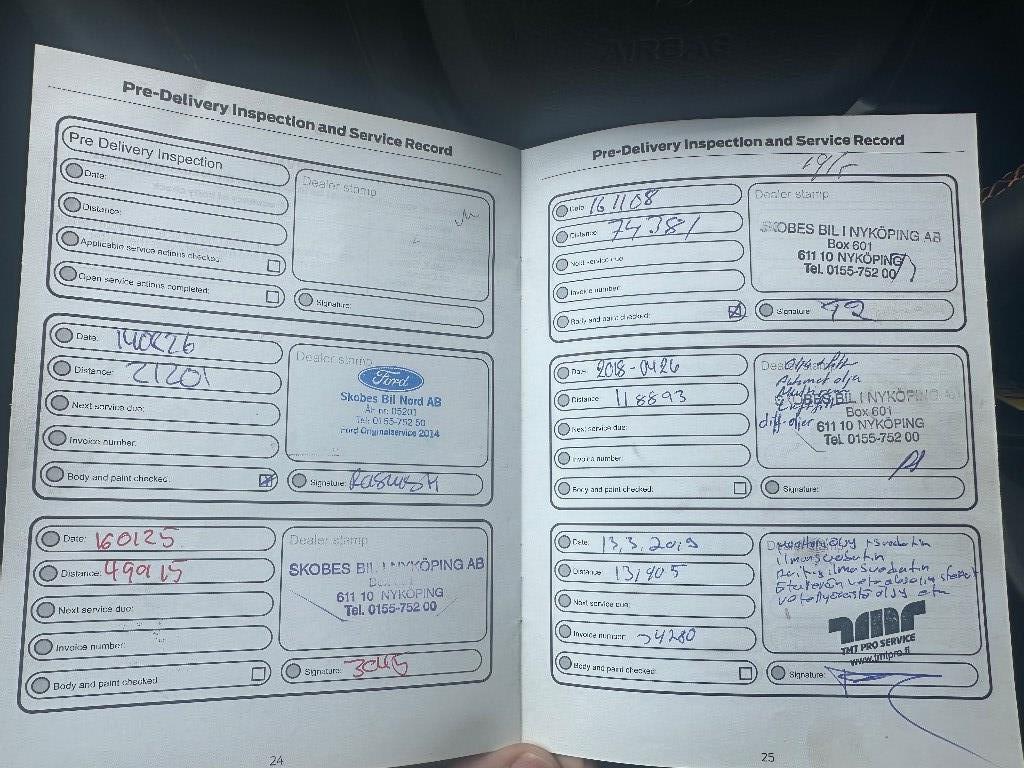 AIRBAG
Pre-Delivery Inspection and Service Record
Pre Delivery Inspection
Date:
Distance:
Applicable service actions checked:
Open service actions completed:
Dealer stamp
Signature:
Date: 140826
Distance: 21201
Next service due:
Invoice number:
Body and paint checked:
Dealer stamp
Ford
Skobes Bil Nord AB
Åf. nr: 05201
Tel: 0155-752 50
Ford Originalservice 2014
Signature:
Date: 160125
Distance: 49915
Next service due:
Invoice number:
Body and paint checked
Dealer stamp
SKOBES BIL I NYKÖPING AB
611 10 NYKÖPING
Tel. 0155-752 00
Signature:
24
Pre-Delivery Inspection and Service Record
Date: 161108
Distance: 74381
Next service due
Invoice number:
Body and paint checked:
Dealer stamp
SKOBES BIL I NYKÖPING AB
Box 601
611 10 NYKÖPING
Tel. 0155-752 00
Signature:
Date: 2018-0426
Distance 118893
Next service due:
Invoice number
Body and paint checked:
BIL I NYKÖPING
Box 601
diff-oljer 611 10 NYKÖPING
Tel. 0155-752 00
Signature:
Date: 13.3.2019
Distance:
Next service due:
Invoice number: 74280
Body and paint checked:
TMT PRO SERVICE
www.tmtpro.fi
Signature:
25